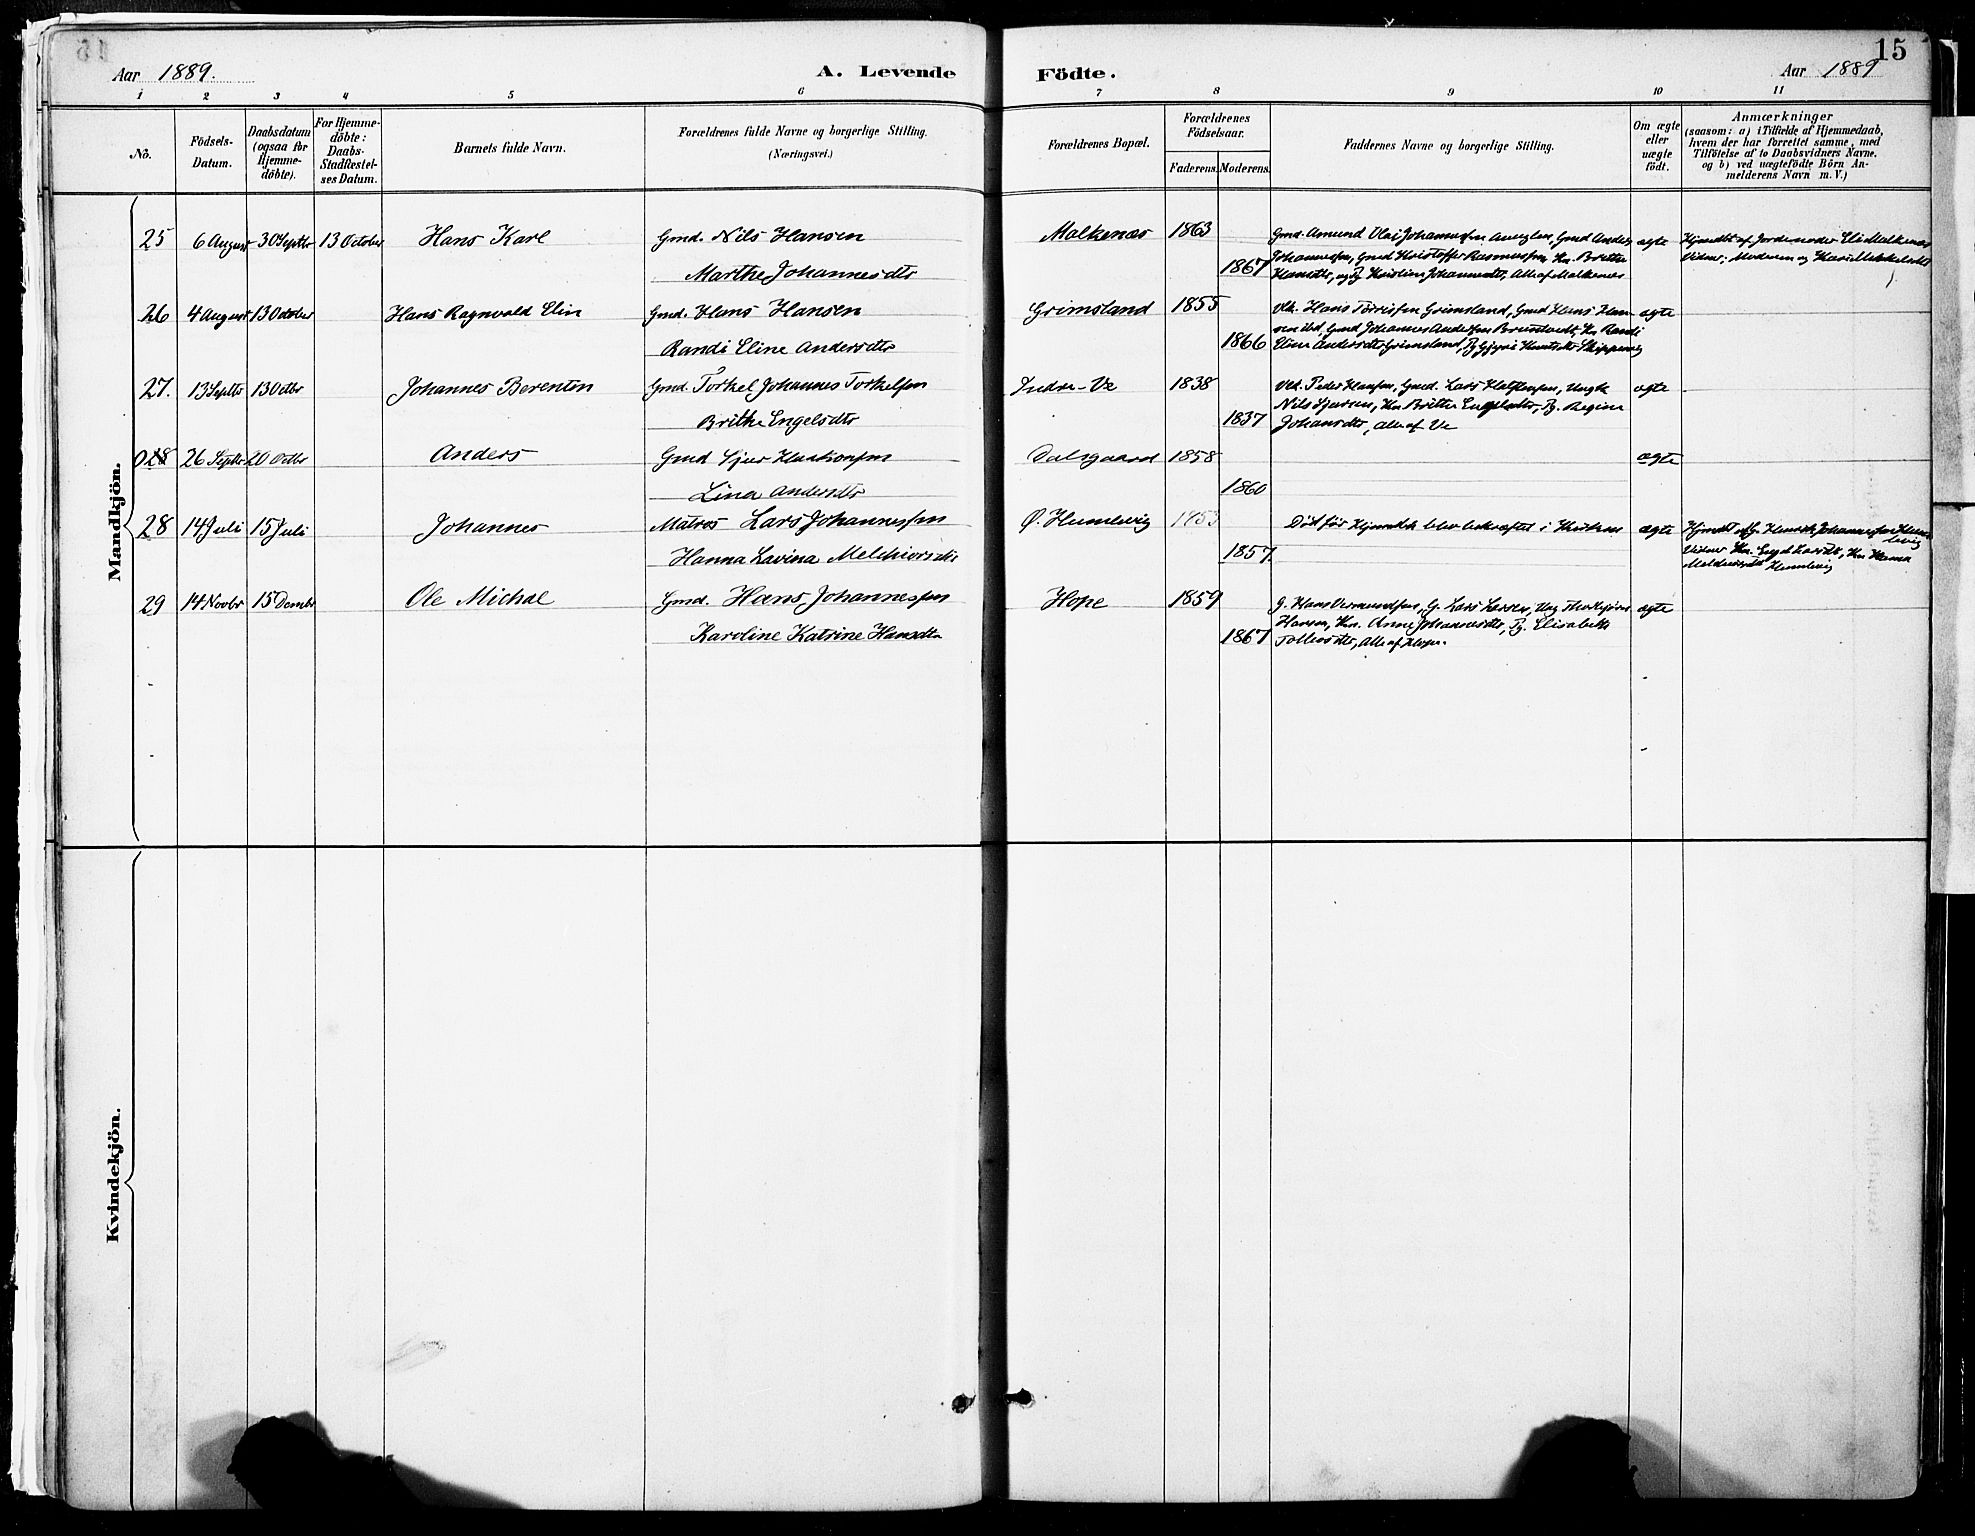 15
Aar 1889. A. Levende Födte. Aar 1889
1 2 3 4 5 6 7 8 9 10 11
No.
Födsels-Datum.
Daabsdatum (ogsaa for Hjemme-döbte).
For Hjemme-döbte: Daabs-Stadfæstel-ses Datum.
Barnets fulde Navn.
Forældrenes fulde Navne og borgerlige Stilling.
(Næringsvei.)
Forældrenes Bopæl.
Forældrenes Födselsaar.
Faderens. Moderens.
Faddernes Navne og borgerlige Stilling.
Om ægte eller uægte födt.
Anmærkninger
(saasom: a) i Tilfælde af Hjemmedaab,
hvem der har forrettet samme, med
Tilföielse af to Daabsvidners Navne,
og b) ved uægtefödte Börn An-
melderens Navn m. V.)
Mandkjön.
25 6 August 30 Septbr 13 October Hans Karl Gmd. Nils Hansen Malkenæs 1863 Gmd. Amund Olai Johannessen, Gmd Anders ægte Hjmdbt af Jordemoder Eli Malkenæs
Marthe Johannesdtr 1867 Johannessen, Gmd Kristoffer Rasmussen, Kn. Brithe Vidner: Moderen og
Hansdtr, og Pg Kristine Johannesdtr, Alle af Malkenæs
26 4 August 13 October Hans Ragnvald Elin Gmd. Hans Hansen Grimsland 1855 Hans Grimsland, Gmd Hans Han- ægte
Randi Eline Andersdtr 1866 sen ibd, Gmd Johannes Andersen Kn Randi
Eline Andersdtr Grimsland, Pg
27. 13 Septbr 13 Octbr Johannes Berentin Gmd. Torkel Johannes Torkelsen Indre-Ve 1838 Peder Hansen, Gmd. Lars Ungk ægte
Brithe Engelsdtr 1837 Nils Sjursen, Kn Brithe Engelsdtr, Pg. Regine
Johansdtr, Alle af Ve
028 26 Septbr 20 Octbr Anders Gmd Sjur Haakonsen Dalsgaard 1858 ægte
Lina Andersdtr 1860
28 14 Juli 15 Juli Johannes Matros Lars Johannessen Ø. Humlevig 1853 Död för Hjemmdbt blev bekræftet i Kirken ægte Hjmdbt af G. Henrik Johannessen Humlevig
Hanna Lavina Melchiorsdtr 1857. Vidner Kn. Larsdtr, Kn Hanna
Humlevig
29 14 Novbr 15 Decmbr Ole Michal Gmd. Hans Johannessen Hope 1859 G. Hans Vermundsen, G. Lars Larsen, Ung Thorbjörn ægte
Karoline Katrine Hansdtr 1867 Hansen, Kn. Anne Johannesdtr, Pg. Elisabeth
Tollevsdtr, Alle af Hope.
Kvindekjön.